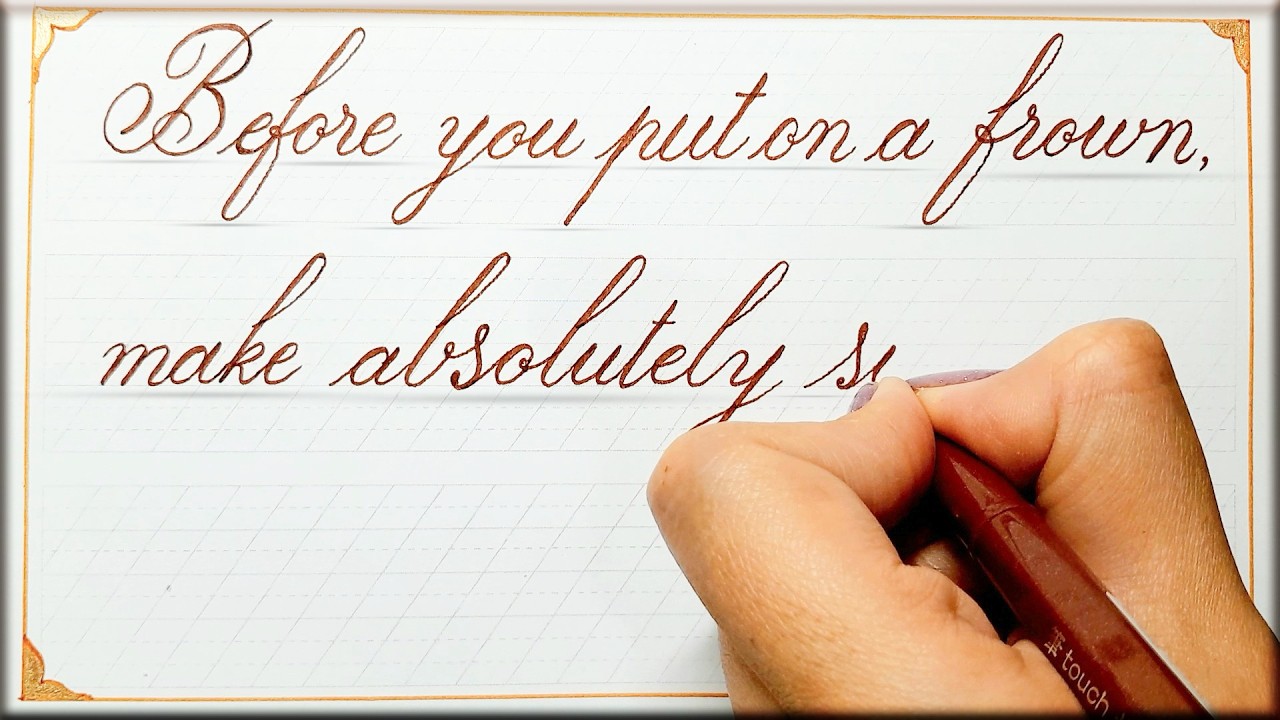 Before you put on a frown,
make absolutely su
#touch